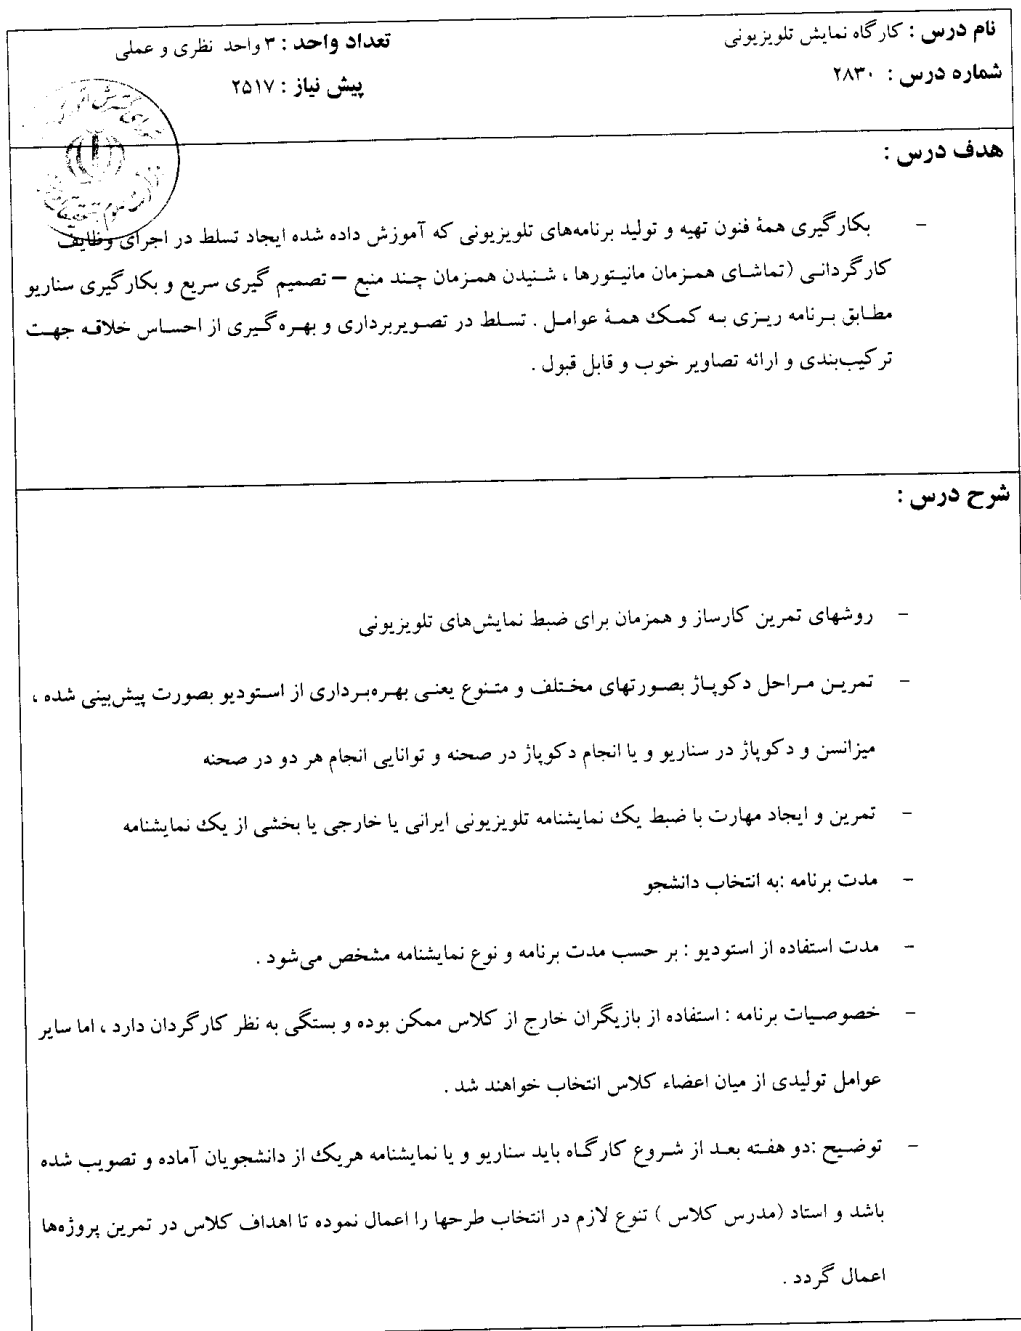 نام درس : کارگاه نمایش تلویزیونی
تعداد واحد : ۳ واحد نظری و عملی
شماره درس : ۲۸۳۰
پیش نیاز : ۲۵۱۷
هدف درس :
- بکارگیری همۀ فنون تهیه و تولید برنامه‌های تلویزیونی که آموزش داده شده ایجاد تسلط در اجرای وظایف
کارگردانی (تماشای همزمان مانیتورها ، شنیدن همزمان چند منبع – تصمیم گیری سریع و بکارگیری سناریو
مطابق برنامه ریزی به کمک همۀ عوامل . تسلط در تصویربرداری و بهره‌گیری از احساس خلاقه جهت
ترکیب‌بندی و ارائه تصاویر خوب و قابل قبول .
شرح درس :
- روشهای تمرین کارساز و همزمان برای ضبط نمایش‌های تلویزیونی
- تمرین مراحل دکوپاژ بصورتهای مختلف و متنوع یعنی بهره‌برداری از استودیو بصورت پیش‌بینی شده ،
میزانسن و دکوپاژ در سناریو و یا انجام دکوپاژ در صحنه و توانایی انجام هر دو در صحنه
- تمرین و ایجاد مهارت با ضبط یک نمایشنامه تلویزیونی ایرانی یا خارجی یا بخشی از یک نمایشنامه
- مدت برنامه :به انتخاب دانشجو
- مدت استفاده از استودیو : بر حسب مدت برنامه و نوع نمایشنامه مشخص می‌شود .
- خصوصیات برنامه : استفاده از بازیگران خارج از کلاس ممکن بوده و بستگی به نظر کارگردان دارد ، اما سایر
عوامل تولیدی از میان اعضاء کلاس انتخاب خواهند شد .
- توضیح :دو هفته بعد از شروع کارگاه باید سناریو و یا نمایشنامه هریک از دانشجویان آماده و تصویب شده
باشد و استاد (مدرس کلاس ) تنوع لازم در انتخاب طرحها را اعمال نموده تا اهداف کلاس در تمرین پروژه‌ها
اعمال گردد .